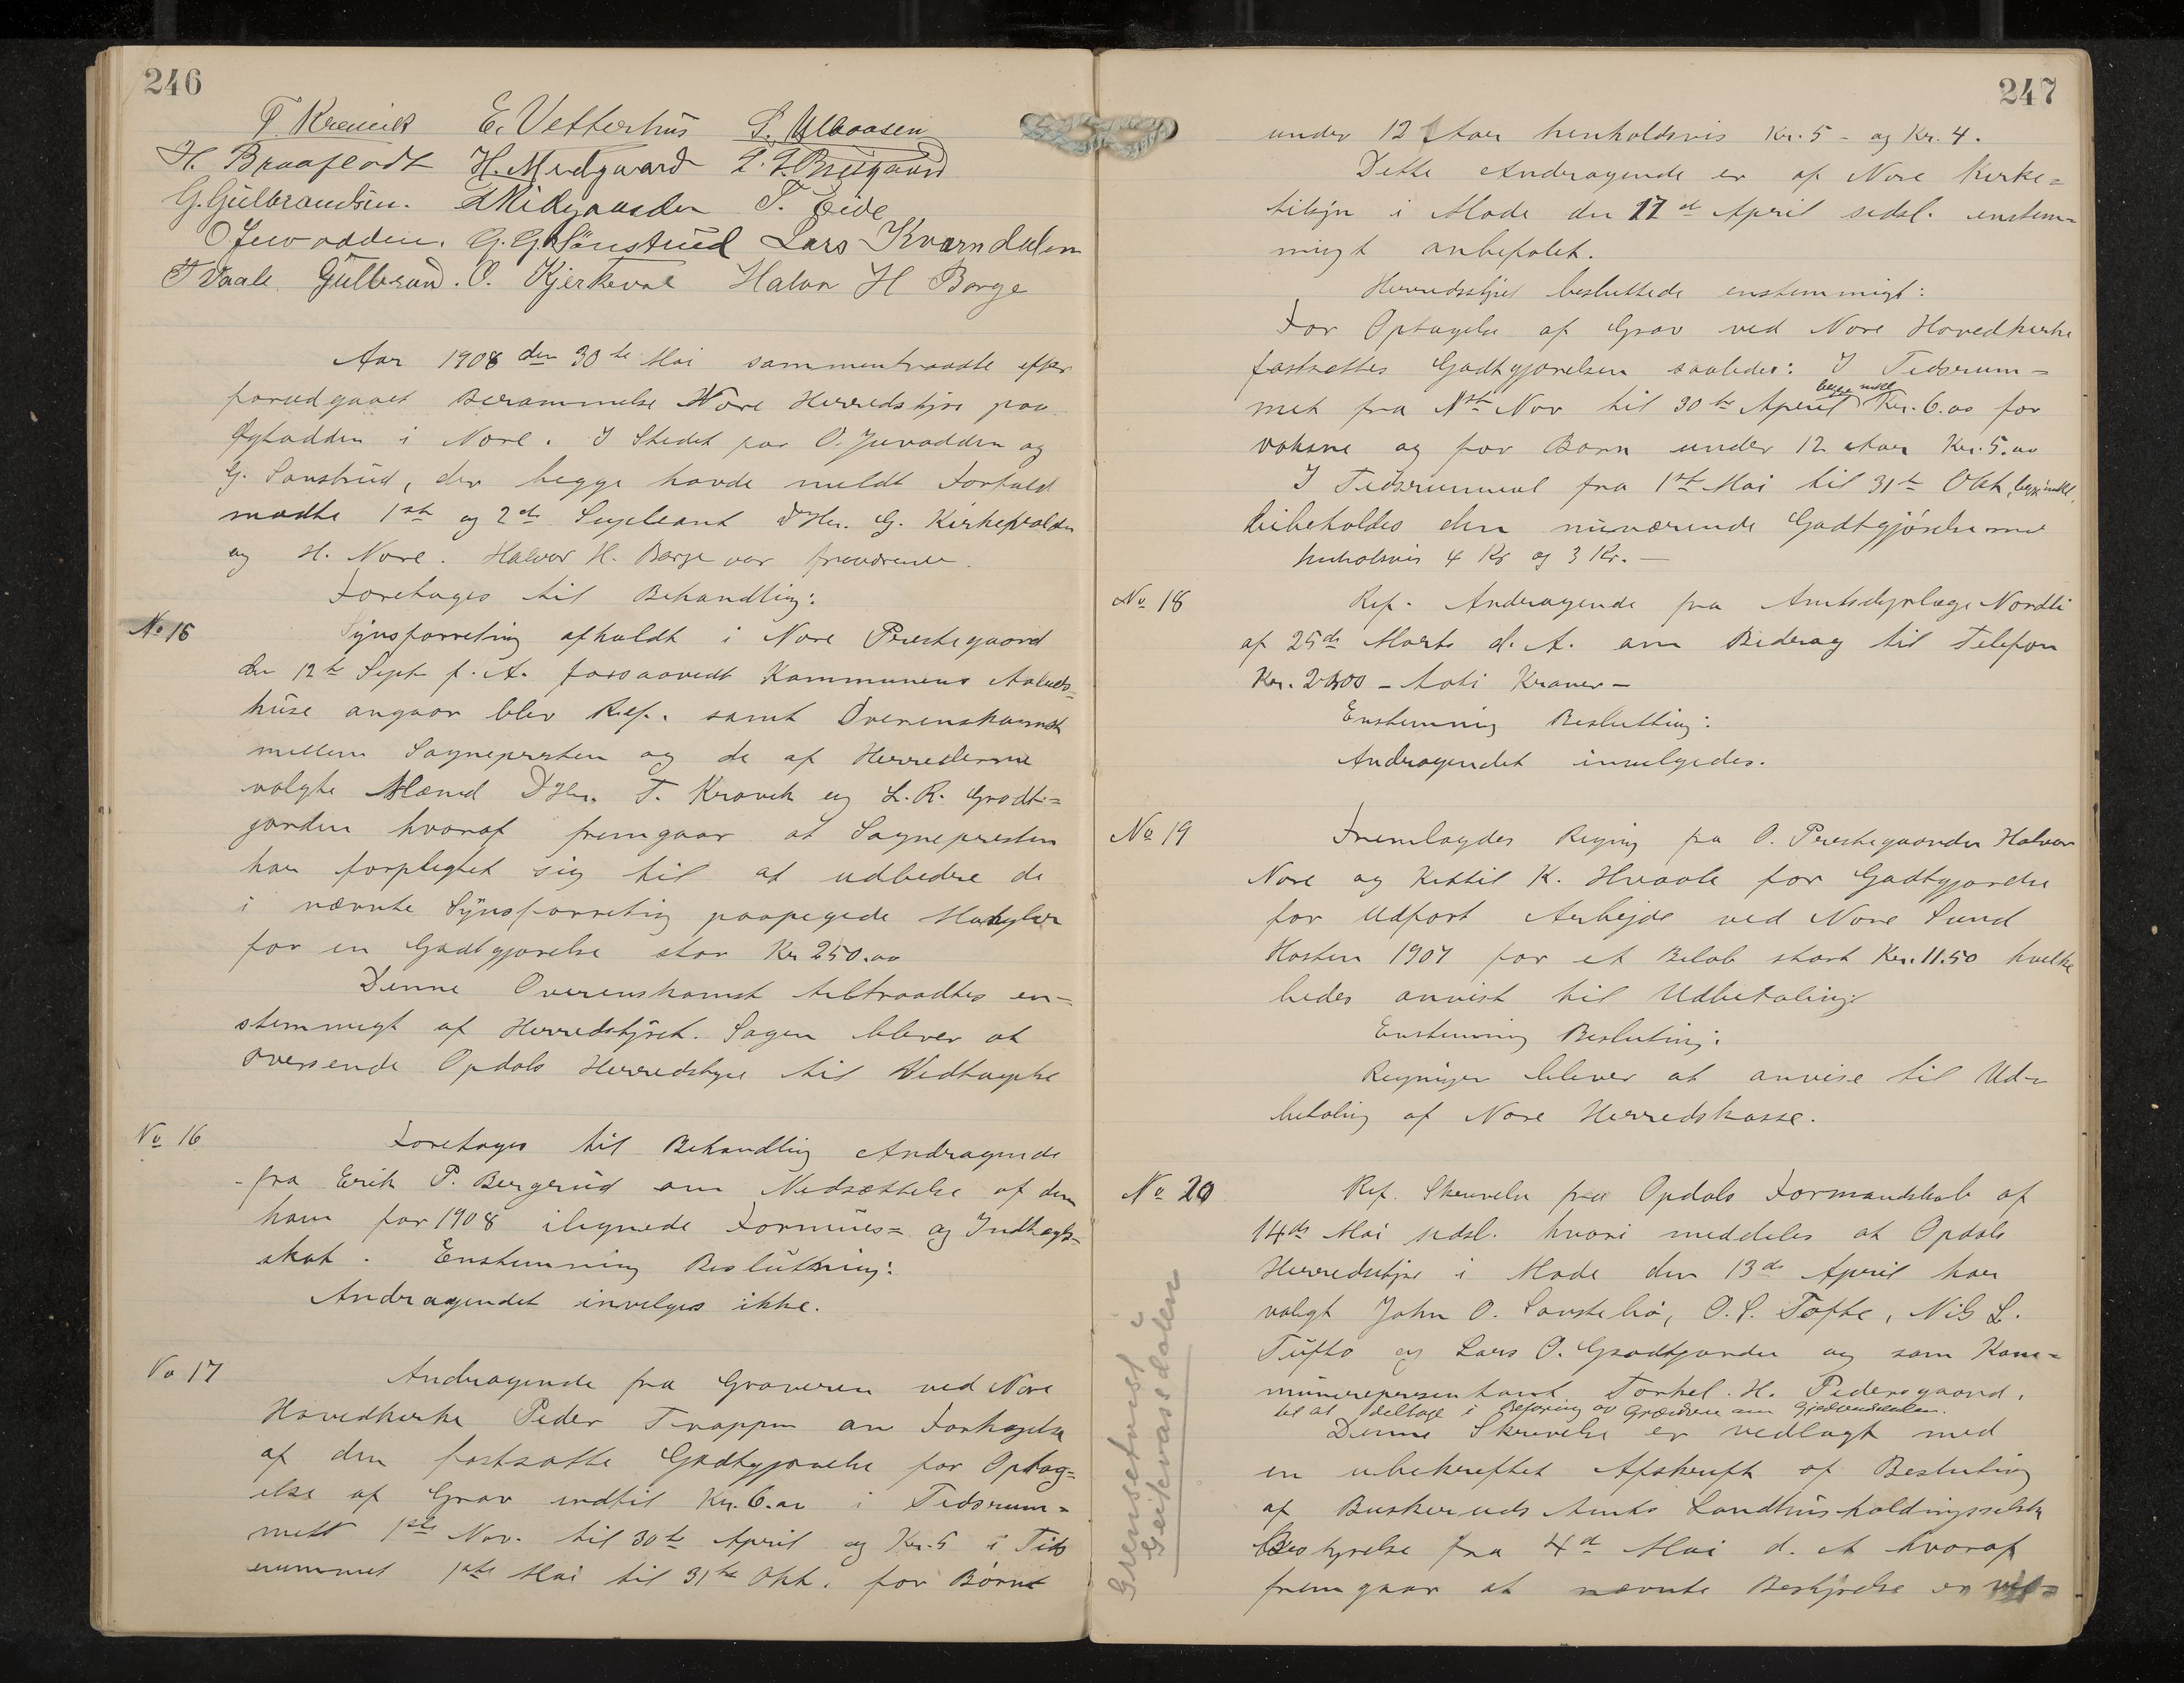 246
T. Kravik E. Vetterhus S. Ulbaasen
H. Braaflodt H. Medgaard
G. Gulbrandsen. T. Eide
O Juvodden. G. G. Sønstrud Lars Kvarndalen
T Vaale Gulbrand. O. Kjerkevol Halvor H Barge
Aar 1908 den 30te Mai sammentraadte efter
forudgaaet Berammelse Nore Herredstyre paa
i Nore. I Stedet for O. Juvodden og
G. Sønstrud, der begge havde meldt Forfald
mødte 1ste og 2den Supleant DHrr. G. Kirkevolden
og H. Nore. Halvor H. Barge var fraværende.
Foretages til Behandling:
No 15
Synsforretning afholdt i Nore Prestegaard
den 12te Sept f. A. forsaavidt Kommunens Aabods=
huse angaar blev Ref. samt Overenskomst
mellem Sognepresten og de af Herrederne
valgte Mænd DHrr. T. Kravik og L. R. Grødt=
jorden hvoraf fremgaar at Sognepresten
har forpligtet sig til at udbedre de
i nævnte Synsforretnig paapegede Mangler
for en Godtgjørelse stor Kr 250.00
Denne Overenskomst tiltraadtes en=
stemmigt af Herredstyret. Sagen bliver at
oversende Opdals Herredstyre til Vedtagelse
No 16
Foretages til Behandling Andragende
fra Erik P. Bergerud om Nedsættelse af den
ham for 1908 ilignede Formues= og Indtægts=
skat. Enstemmig Beslutning:
Andragendet invilges ikke.
No 17
Andragende fra Graveren ved Nore
Hovedkirke Peder Trappen om Forhøielse
af den fastsatte Godtgjørelse for Optag=
else af Grav indtil Kr. 6.00 i Tidsrum=
mett 1ste Nov. til 30te April og Kr. 5 i Tids
rummet 1ste Mai til 31te Okt. for Børn
247
under 12 Aar henholdsvis Kr. 5 - og Kr. 4.
Dette Andragende er af Nore Kirke=
tilsyn i Møde den 17de April sidsl. enstem=
migt anbefalet.
Herredsstyret besluttede enstemmigt:
For Optagelse af Grav ved Nore Hovedkirke
fastsættes Godtgjørelsen saaledes: I Tidsrum=
met fra 1ste Nov til 30te April begge inkl Kr. 6.00 for
voksne og for Børn under 12 Aar Kr. 5.00
I Tidsrummet fra 1ste Mai til 31te Okt, begge inkl.
bibeholdes den nuværende Godtgjørelse med
henholsvis 4 Kr og 3 Kr. —
No 18
Ref. Andragende fra Amtsdyrlæge Nordli
af 25de Marts d. A. om Bidrag til Telefon
Kr. - Kroner -
Enstemmig Beslutting:
Andragendet innvilgedes.
No 19
Fremlagdes Regnig fra O. Prestegaarden Halvor
Nore og Kittil K. Hvaale for Godtgjørelse
for Udført Arbejde ved Nore Sund
Høsten 1907 for et Beløb stort Kr. 11.50 hvilke
bedes anvist til Udbetaling
Enstemmig Beslutnig:
Regnigen bliver at anvise til Ud=
betalig af Nore Herredskasse.
No 20
Ref. Skrivelse fra Opdals Formandskab af
14de Mai sidsl. hvori meddeles at Opdals
Herredstyre i Møde den 13de April har
valgt John O. Søntelid, O. S. Tofte, Nils L.
Tufto og Lars O. Grødtjorden og som Kom=
munerepresentant Torkel H. Pedersgaard.
til at deltage i Befaring av Grændsen om
Denne Skrivelse er vedlagt med
en ubekreftet Afskrift af Beslutnig
af Buskeruds Amts Landhusholdingsselsk
Bestyrelse fra 4de Mai d. A hvoraf
fremgaar at nævnte Bestyrelse er vil=
Grensetvist i
Geitevassdalen